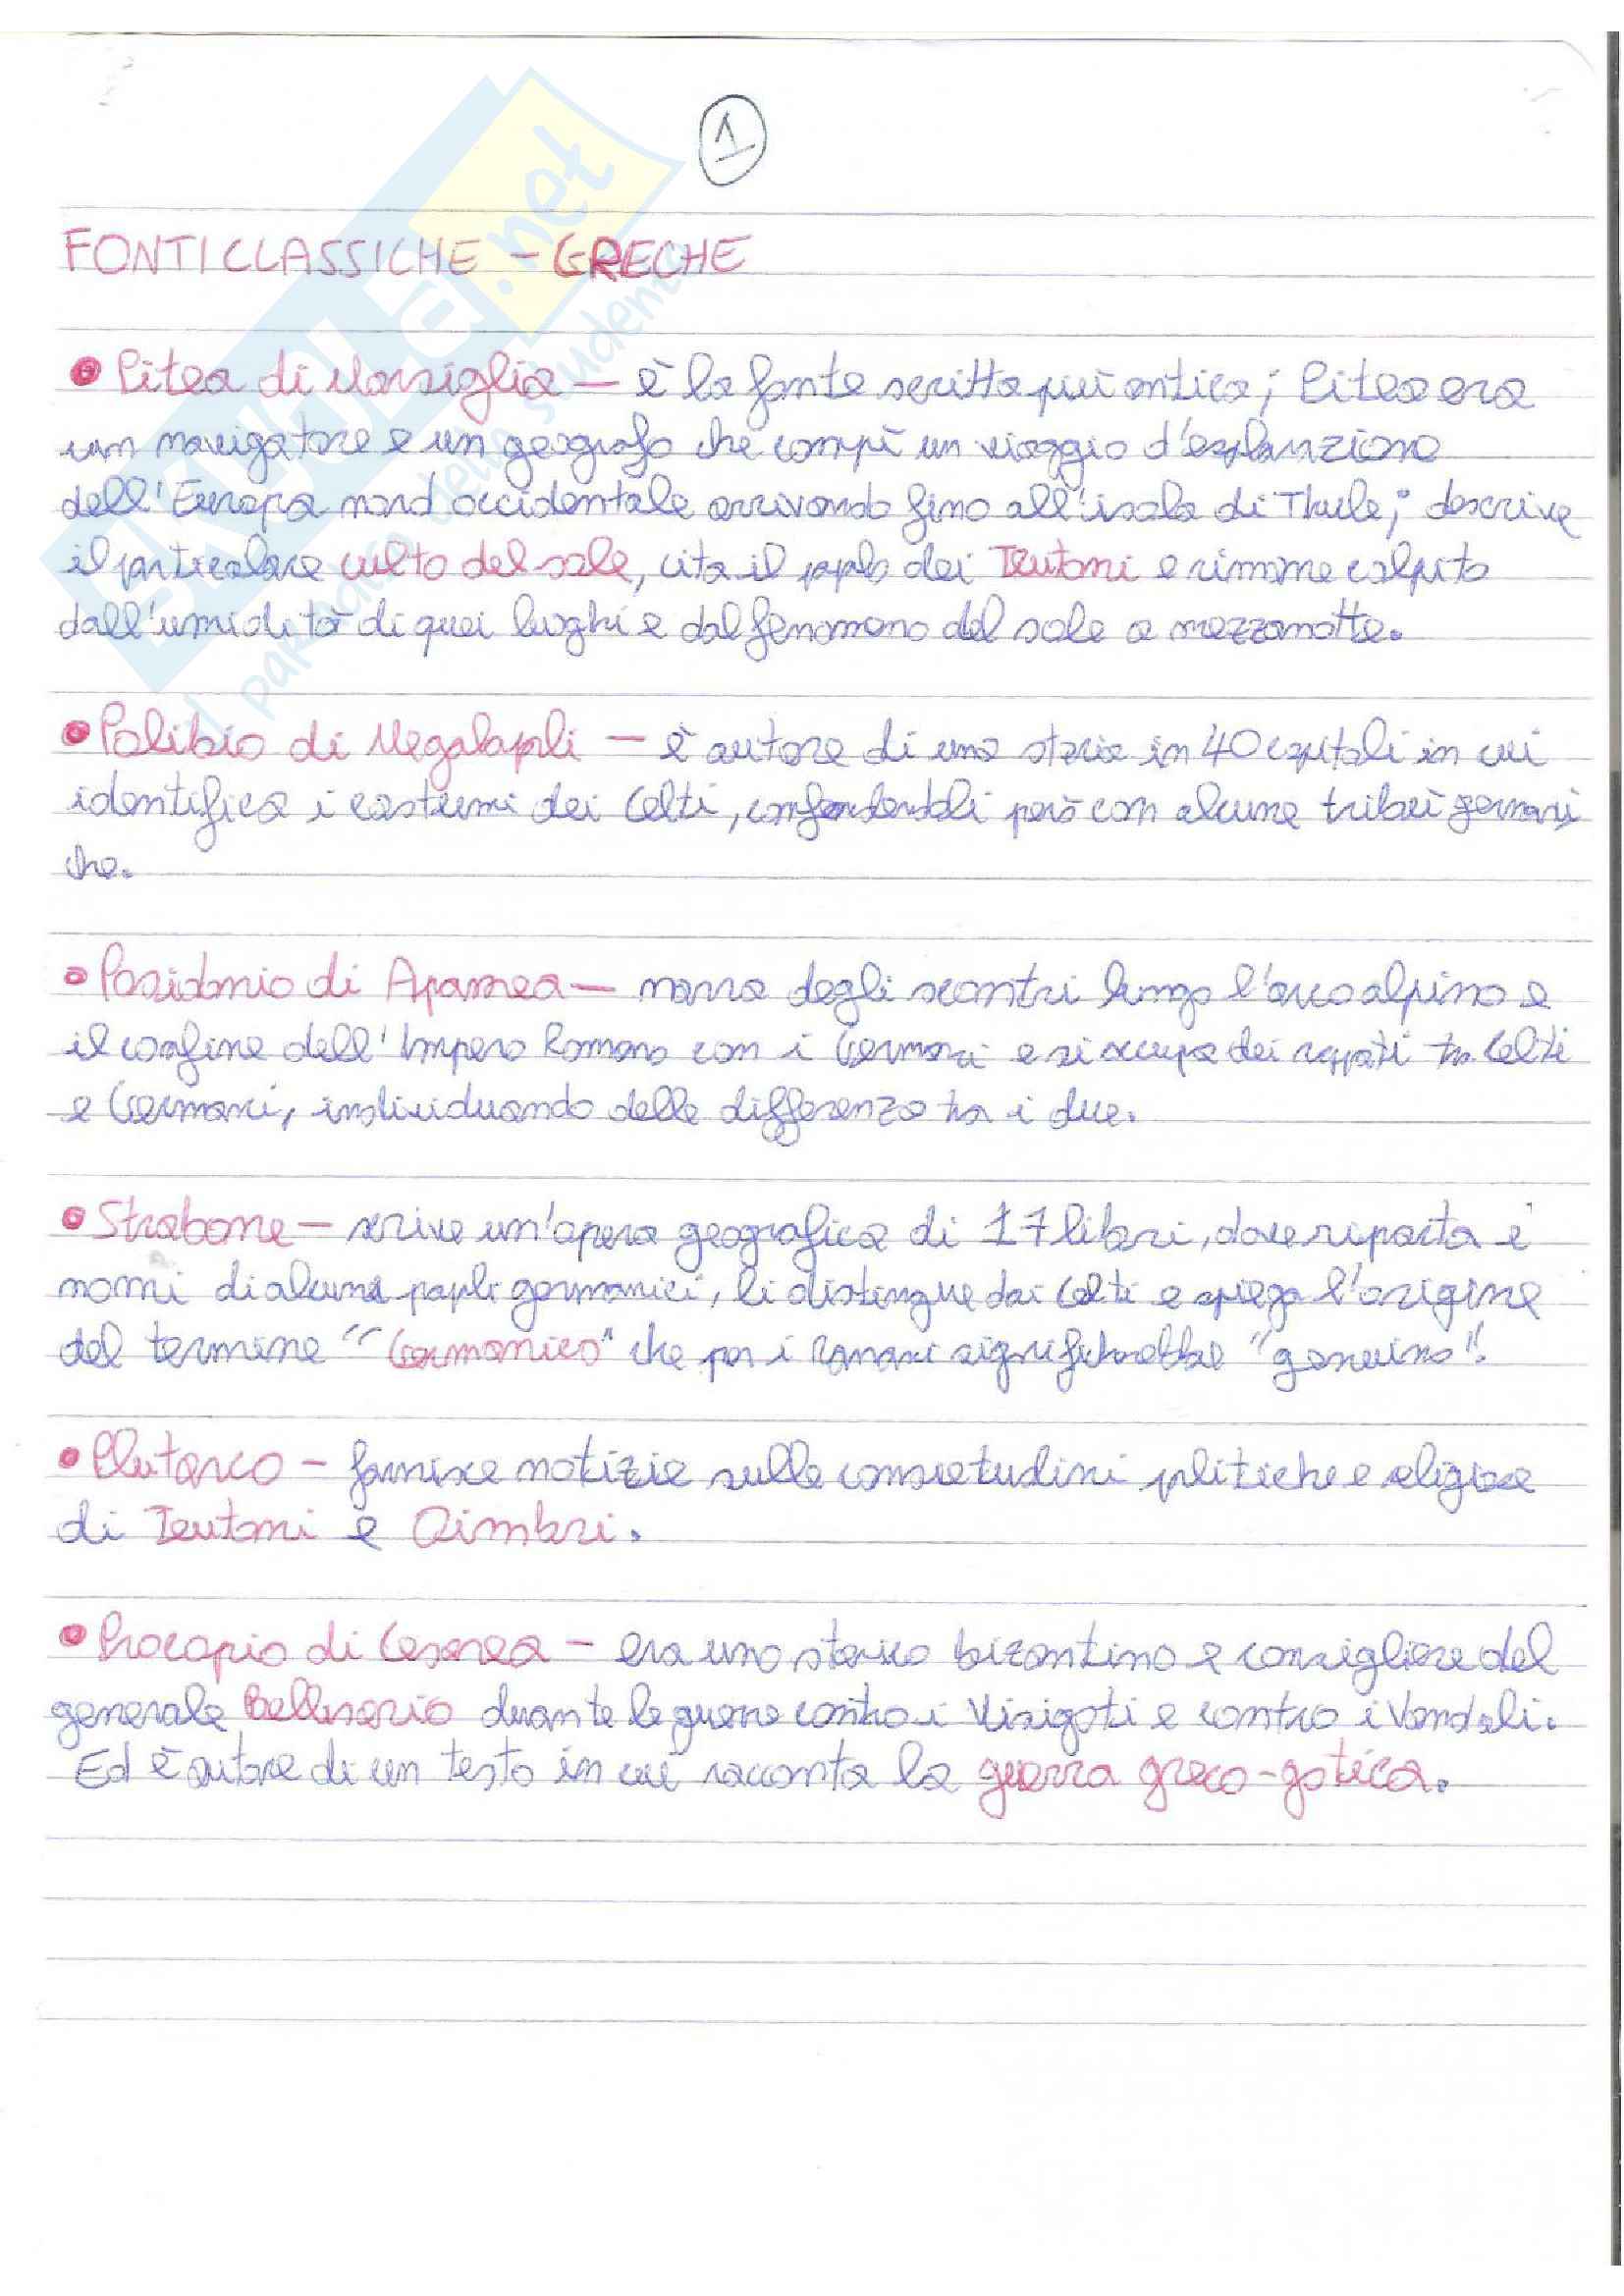 1
FONTI CLASSICHE - GRECHE
• Pitea di Marsiglia — è la fonte scritta più antica; Pitea era
un navigatore e un geografo che compì un viaggio d'esplorazione
dell'Europa nord occidentale arrivando fino all'isola di Thule; descrive
il particolare culto del sole, cita il popolo dei Teutoni e rimane colpito
dall'umidità di quei luoghi e dal fenomeno del sole a mezzanotte.
• Polibio di Megalopoli — è autore di una storia in 40 capitoli in cui
identifica i costumi dei Celti, confondendoli però con alcune tribù germani
che.
• Posidonio di Apamea — narra degli scontri lungo l'arco alpino e
il confine dell'Impero Romano con i Germani e si occupa dei rapporti tra Celti
e Germani, individuando delle differenze tra i due.
• Strabone — scrive un'opera geografica di 17 libri, dove riporta i
nomi di alcuni popoli germanici, li distingue dai Celti e spiega l'origine
del termine "Germanico" che per i Romani significherebbe "genuino".
• Plutarco - fornisce notizie sulle consuetudini politiche e religiose
di Teutoni e Cimbri.
• Procopio di Cesarea — era uno storico bizantino e consigliere del
generale Bellisario durante le guerre contro i Visigoti e contro i Vandali.
Ed è autore di un testo in cui racconta la guerra greco-gotica.
SKUOLA.net
il paradiso dello studente